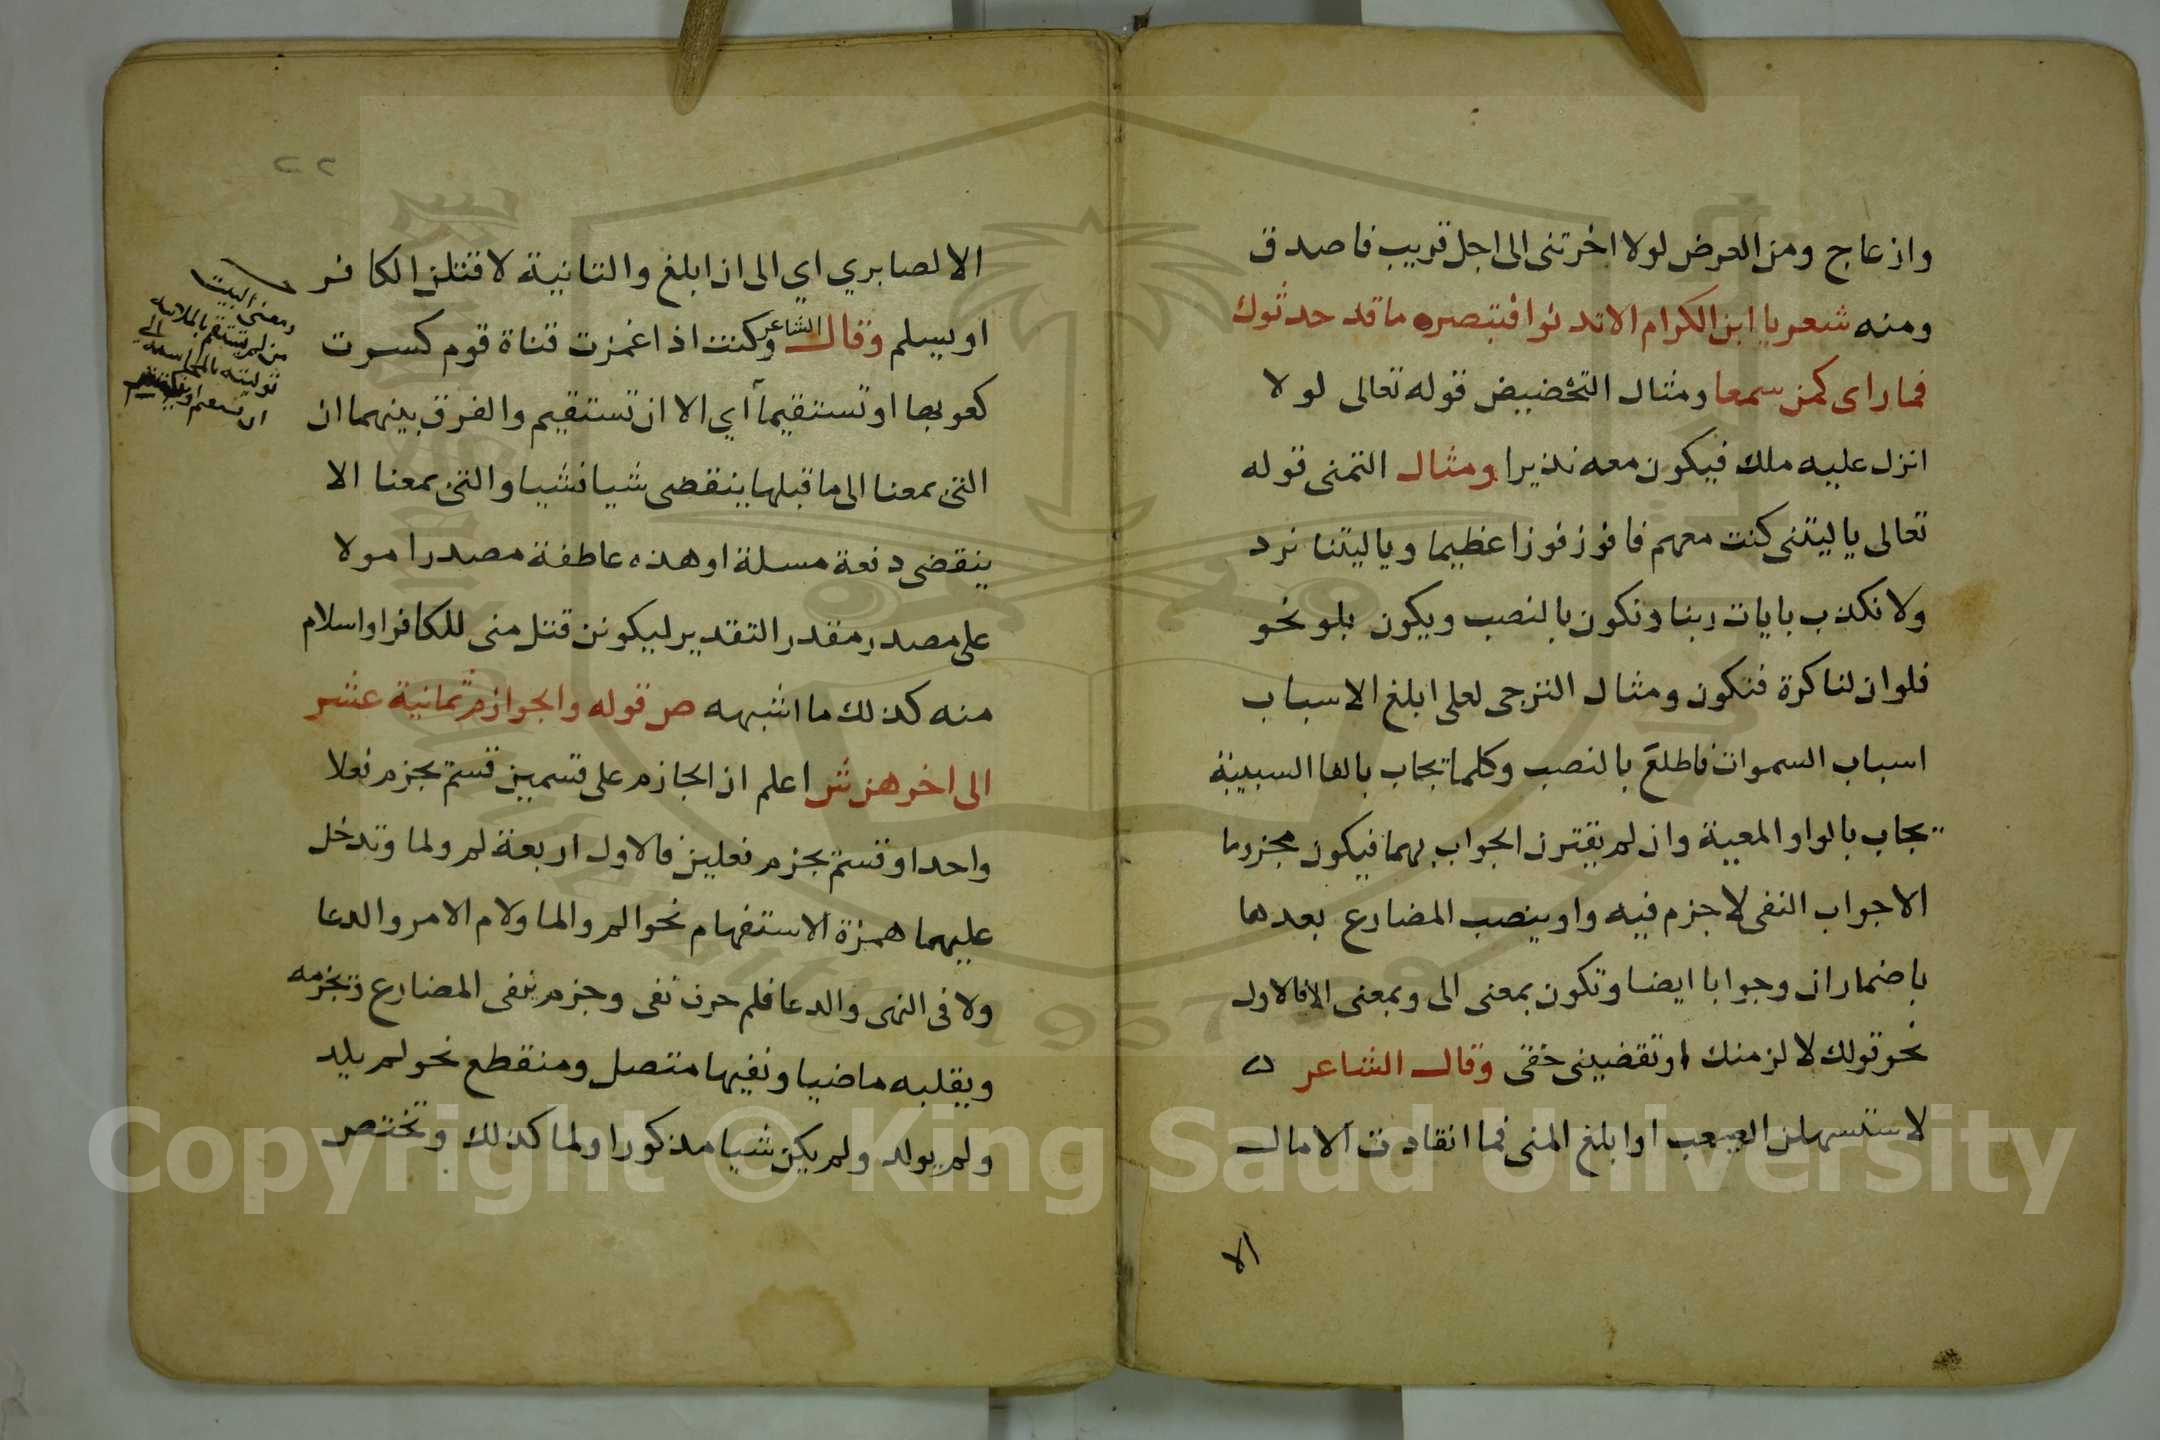 وازعاج ومن العرض لولا اخرتنى الى اجل قريب فاصدق
ومنه شعر يا ابن الكرام الا تدنوا فتبصره ما قد حدثوك
فما راى كمن سمعا ومثال التخضيض قوله تعالى لولا
انزل عليه ملك فيكون معه نذيرا ومثال التمنى قوله
تعالى يا ليتنى كنت معهم فافوز فوزا عظيما ويا ليتنا نرد
ولا نكذب بايات ربنا ونكون بالنصب ويكون بلو نحو
فلوان لنا كرة فنكون ومثال الترجى لعلى ابلغ الاسباب
اسباب السموات فاطلعَ بالنصب وكلما تجاب بالفا السببية
تجاب بالواو المعية وان لم يقترن الجواب بهما فيكون مجزوما
الا جواب النفى لا جزم فيه واو ينصب المضارع بعدها
باضمار ان وجوابا ايضا وتكون بمعنى الى وبمعنى الا فالاول
نحو قولك لا لزمنك او تقضينى حقى وقال الشاعر
لا ستسهلن الصعب او ابلغ المنى فما انقادت الامال
الا
٢٢
الا لصابري اي الى ان ابلغ والثانية لا قتلن الكافر
او يسلم وقال الشاعر وكنت اذا غمزت قناة قوم كسرت
كعوبها او تستقيماً اي الا ان تستقيم والفرق بينهما ان
التى بمعنا الى ما قبلها ينقضى شيا فشيا والتى بمعنا الا
ينقضى دفعة مسلة او هذه عاطفة مصدرا مولا
على مصدر مقدر التقدير ليكونن قتل منى للكافر او اسلام
منه كذلك ما اشبهه ص قوله والجوازم ثمانية عشر
الى اخرهن ش اعلم ان الجازم على قسمين قسم يجزم فعلا
واحدا وقسم يجزم فعلين فالاول اربعة لم ولما وتدخل
عليهما همزة الاستفهام نحو الم والما ولام الامر والدعا
ولا فى النهى والدعا فلم حرف نفى وجزم ينفى المضارع وتجزمه
ويقلبه ماضيا ونفيها متصل ومنقطع نحو لم يلد
ولم يولد ولم يكن شيا مذكورا ولما كذلك وتختص
ومعنى البيت
من لم يستقم بالملاينه
Copyright © King Saud University
1957